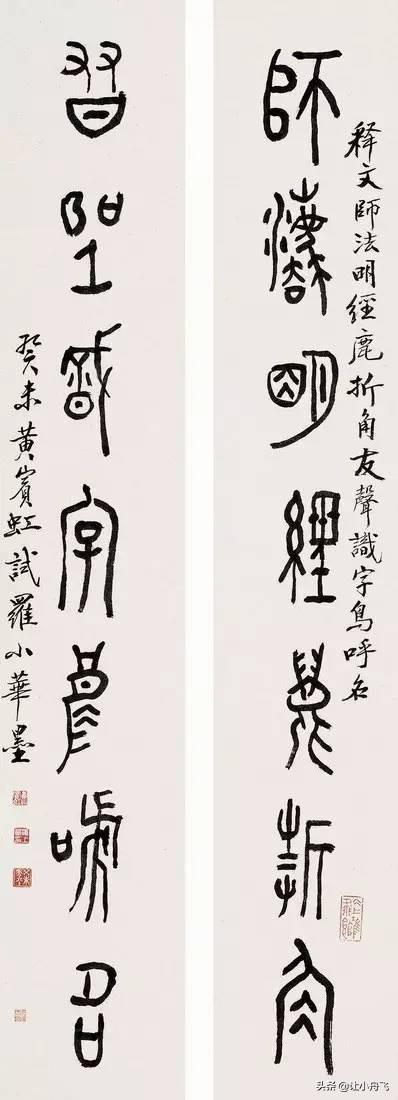 释文師法明經鹿折角友聲識字鳥呼名
師灋明經鹿折角
友聲識字鳥呼名
癸未黃賓虹試羅小華墨
头条 @让小舟飞